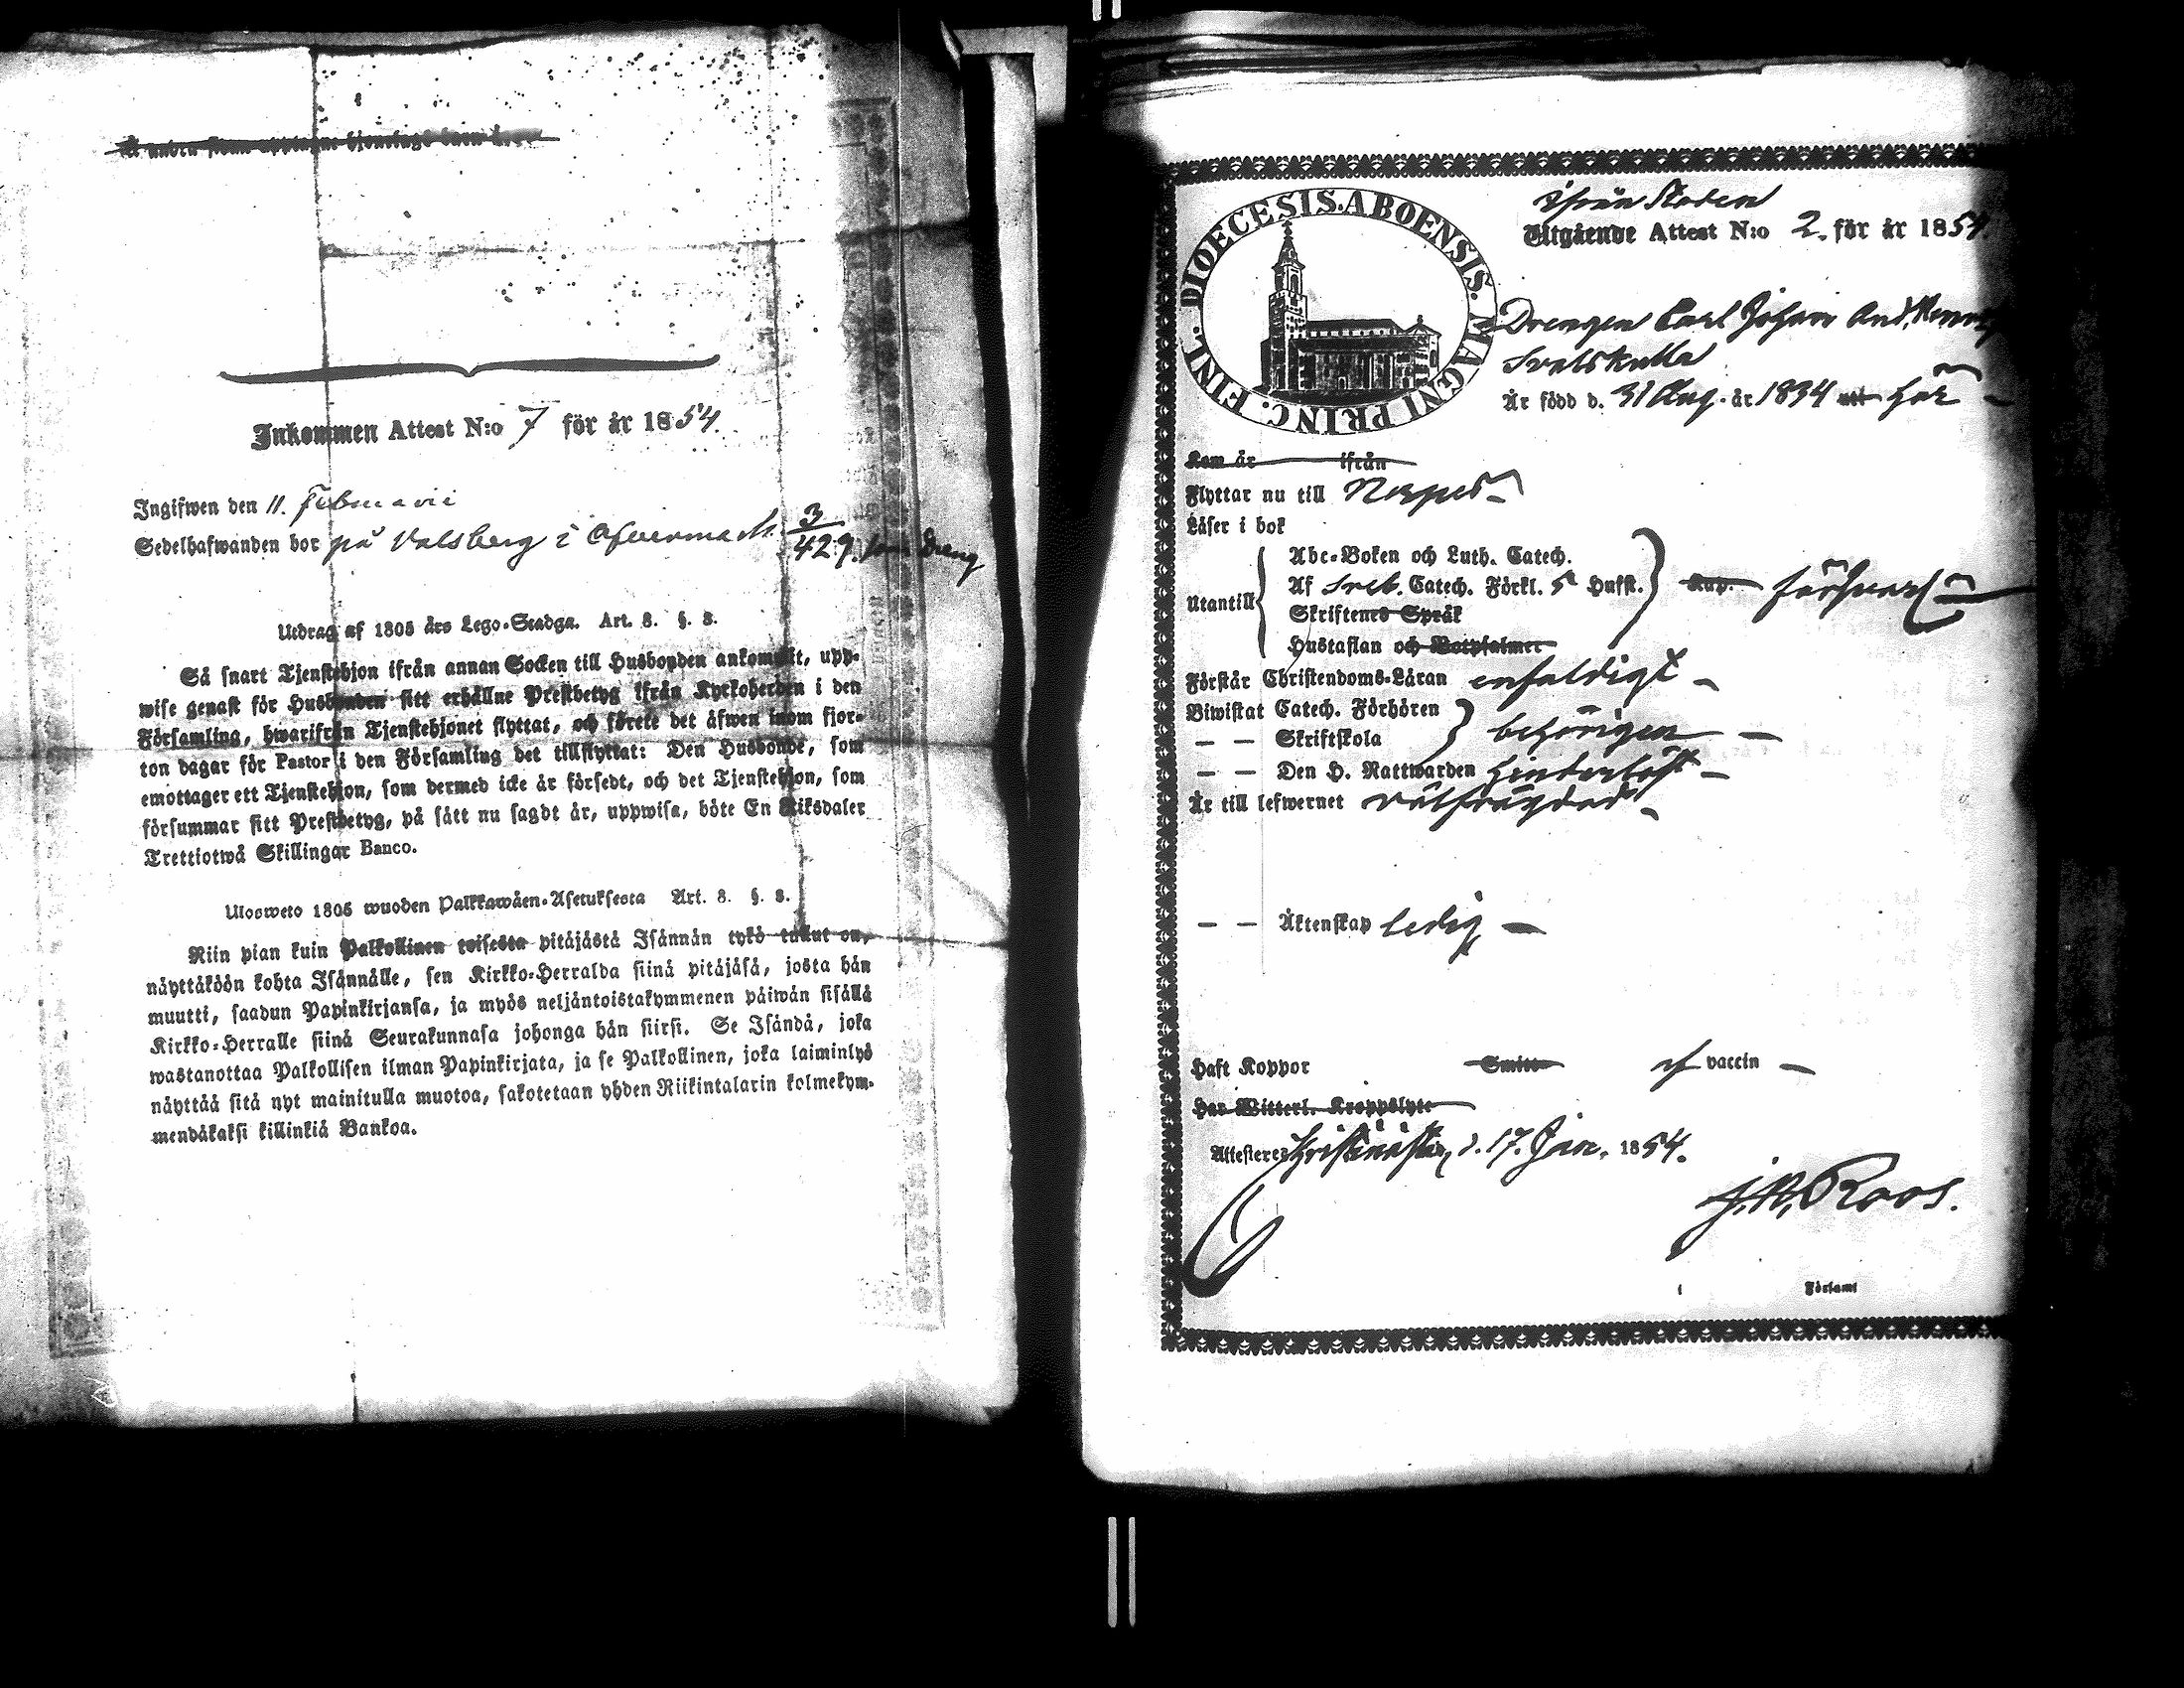 Inkommen Attest N:o 7 för år 1854.
Ingifwen den 11. Februarii
Sedelhafwanden bor på Valsberg i 3/429. som dreng
Utdrag af 1805 års Lego-Stadga. Art. 8. §. 8.
Så snart Tjenstehjon ifrån annan Socken till Husbonden ankommit, upp-
wise genast för Husbonden sitt erhållne Prestbetyg ifrån Kyrkoherden i den
Församling, hwarifrån Tjenstehjonet flyttat, och förete det äfwen inom fjor-
ton dagar för Pastor i den Församling det tillflyttat: Den Husbonde, som
emottager ett Tjenstehjon, som dermed icke är försedt, och det Tjenstehjon, som
försummar sitt Prestbetyg, på sätt nu sagdt är, uppwisa, böte En Riksdaler
Trettiotwå Skillingar Banco.
Ulosweto 1805 wuoden Palkkawäen-Asetuksesta Art. 8. §. 8.
Niin pian kuin Palkollinen toisesta pitäjästä Isännän tykö tullut on,
näyttäköön kohta Isännälle, sen Kirkko-Herralda siinä pitäjäsä, josta hän
muutti, saadun Papinkirjansa, ja myös neljäntoistakymmenen päiwän sisällä
Kirkko-Herralle siinä Seurakunnasa johonga hän siirsi. Se Isändä, joka
wastanottaa Palkollisen ilman Papinkirjata, ja se Palkollinen, joka laiminlyö
näyttää sitä nyt mainitulla muotoa, sakotetaan yhden Riikintalarin kolmekym-
mendäkaksi killinkiä Bankoa.
DIOECESIS. ABOENSIS. MAGNI PRINC. FINL.
ifrån Staden
Utgående Attest N:o 2. för år 1854.
Drengen Carl Johan And.
Svalskulla
Är född d. 31 Aug. år 1834 här
Kom år ifrån
Flyttar nu till Nerpes
Läser i bok
Utantill
Abc-Boken och Luth. Catech.
Af Sveb. Catech. Förkl. 5 Hufst.
Skriftenes Språk
Hustaflan och Botpsalmer
Kap. försvarl
Förstår Christendoms-Läran enfaldigt
Biwistat Catech. Förhören
— — Skriftskola
behörigen
— — Den H. Nattwarden hinderlöst
Är till lefwernet välfrägdad
— — Äktenskap ledig
Haft Koppor Smitt af vaccin
Har Witterl. Kroppslyte
Attesteres d. 17. Jan. 1854.
Roos.
Församl